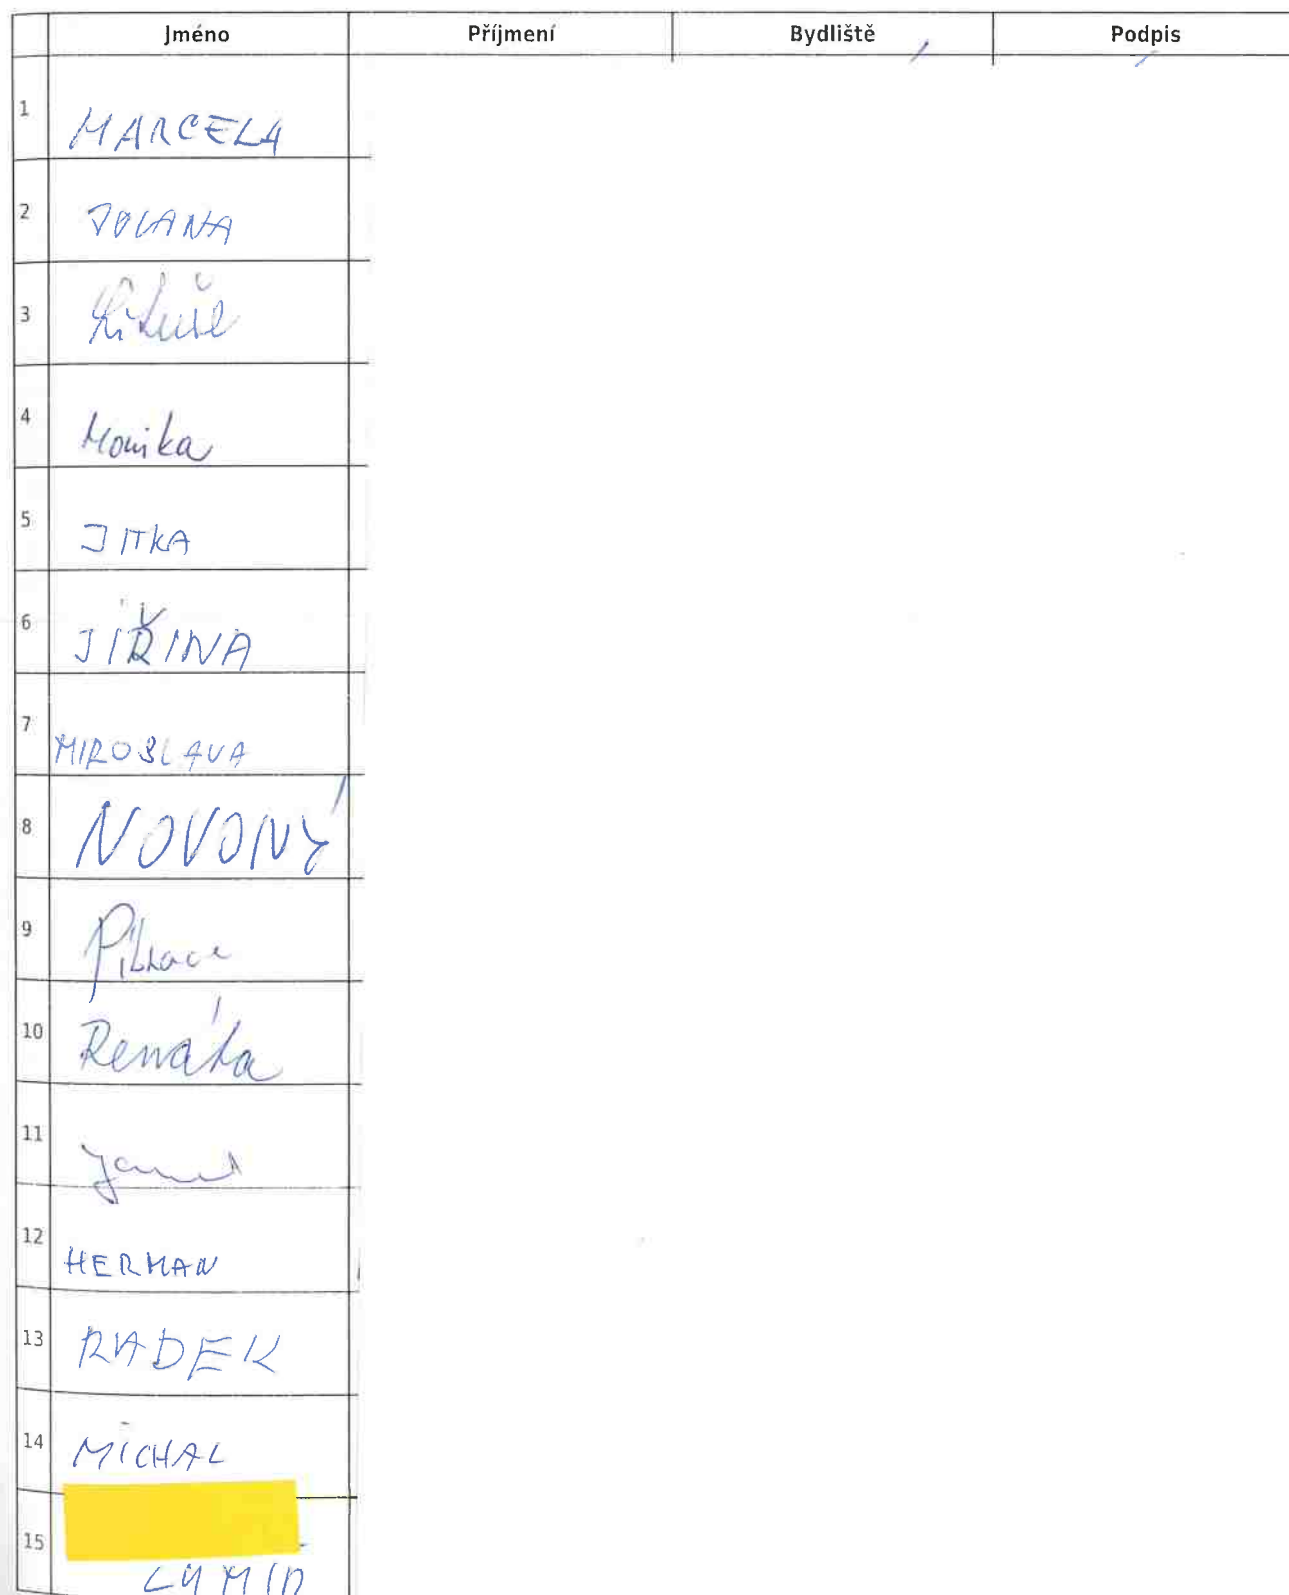 Jméno Příjmení Bydliště Podpis
1 MARCELA
2 JOLANA
3 Libuše
4 Monika
5 JITKA
6 JIŘINA
7 MIROSLAVA
8 NOVONÝ
9
10 Renáta
11
12 HERMAN
13 RADEK
14 MICHAL
15